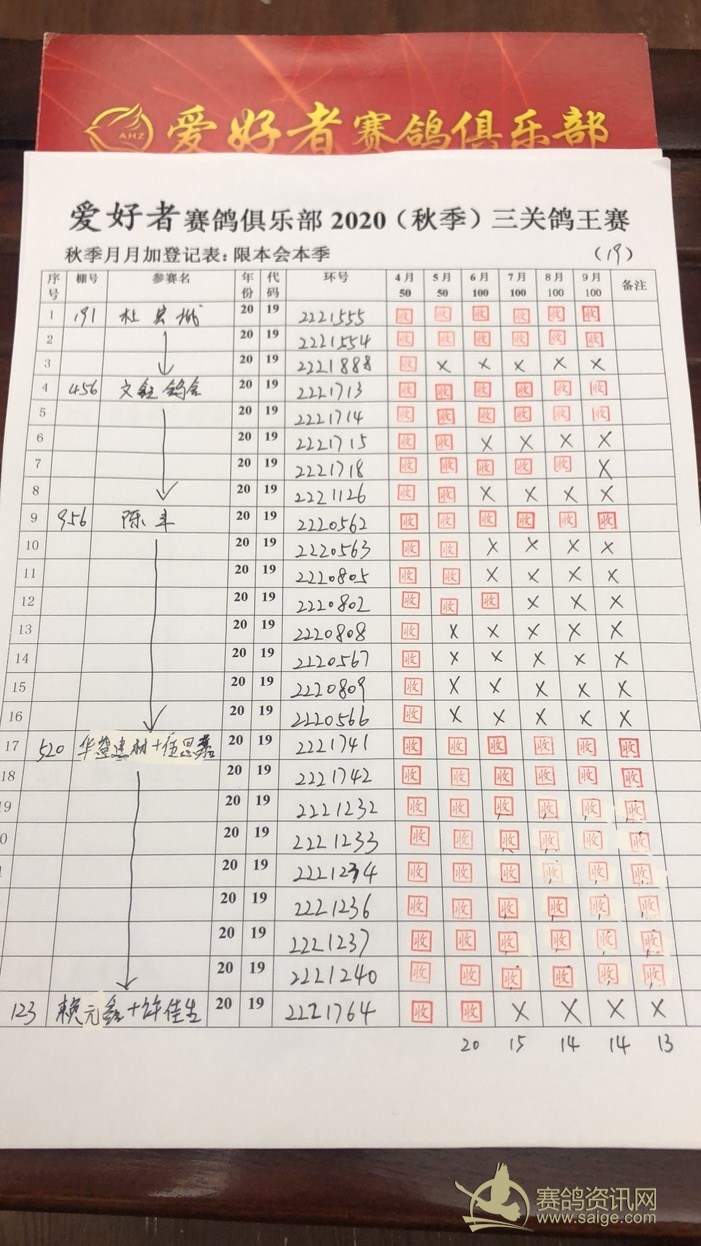 AHZ 爱好者赛鸽俱乐部
爱好者赛鸽俱乐部2020（秋季）三关鸽王赛
秋季月月加登记表：限本会本季 （19）
序号 棚号 参赛名 年份 代码 环号 4月50 5月50 6月100 7月100 8月100 9月100 备注
1 191 杜 20 19 2221555 收 收 收 收 收 收
2 20 19 2221554 收 收 收 收 收 收
3 20 19 2221888 收 × × × × ×
4 456 文 鸽舍 20 19 2221713 收 收 收 收 收 收
5 20 19 2221714 收 收 收 收 收 收
6 20 19 2221715 收 收 × × × ×
7 20 19 2221718 收 收 收 收 收 ×
8 20 19 2221126 收 收 × × × ×
9 956 陈 20 19 2220562 收 收 收 收 收 收
10 20 19 2220563 收 收 × × × ×
11 20 19 2220805 收 收 × × × ×
12 20 19 2220802 收 收 收 × × ×
13 20 19 2220808 收 × × × × ×
14 20 19 2220567 收 × × × × ×
15 20 19 2220809 收 × × × × ×
16 20 19 2220566 收 × × × × ×
17 520 华登建材+伍思 20 19 2221741 收 收 收 收 收 收
18 20 19 2221742 收 收 收 收 收 收
9 20 19 2221232 收 收 收 收 收 收
0 20 19 2221233 收 收 收 收 收 收
20 19 2221234 收 收 收 收 收 收
20 19 2221236 收 收 收 收 收 收
20 19 2221237 收 收 收 收 收 收
20 19 2221240 收 收 收 收 收 收
123 赖元鑫+许佳生 20 19 2221764 收 收 × × × ×
20 15 14 14 13
赛鸽资讯网
www.saige.com